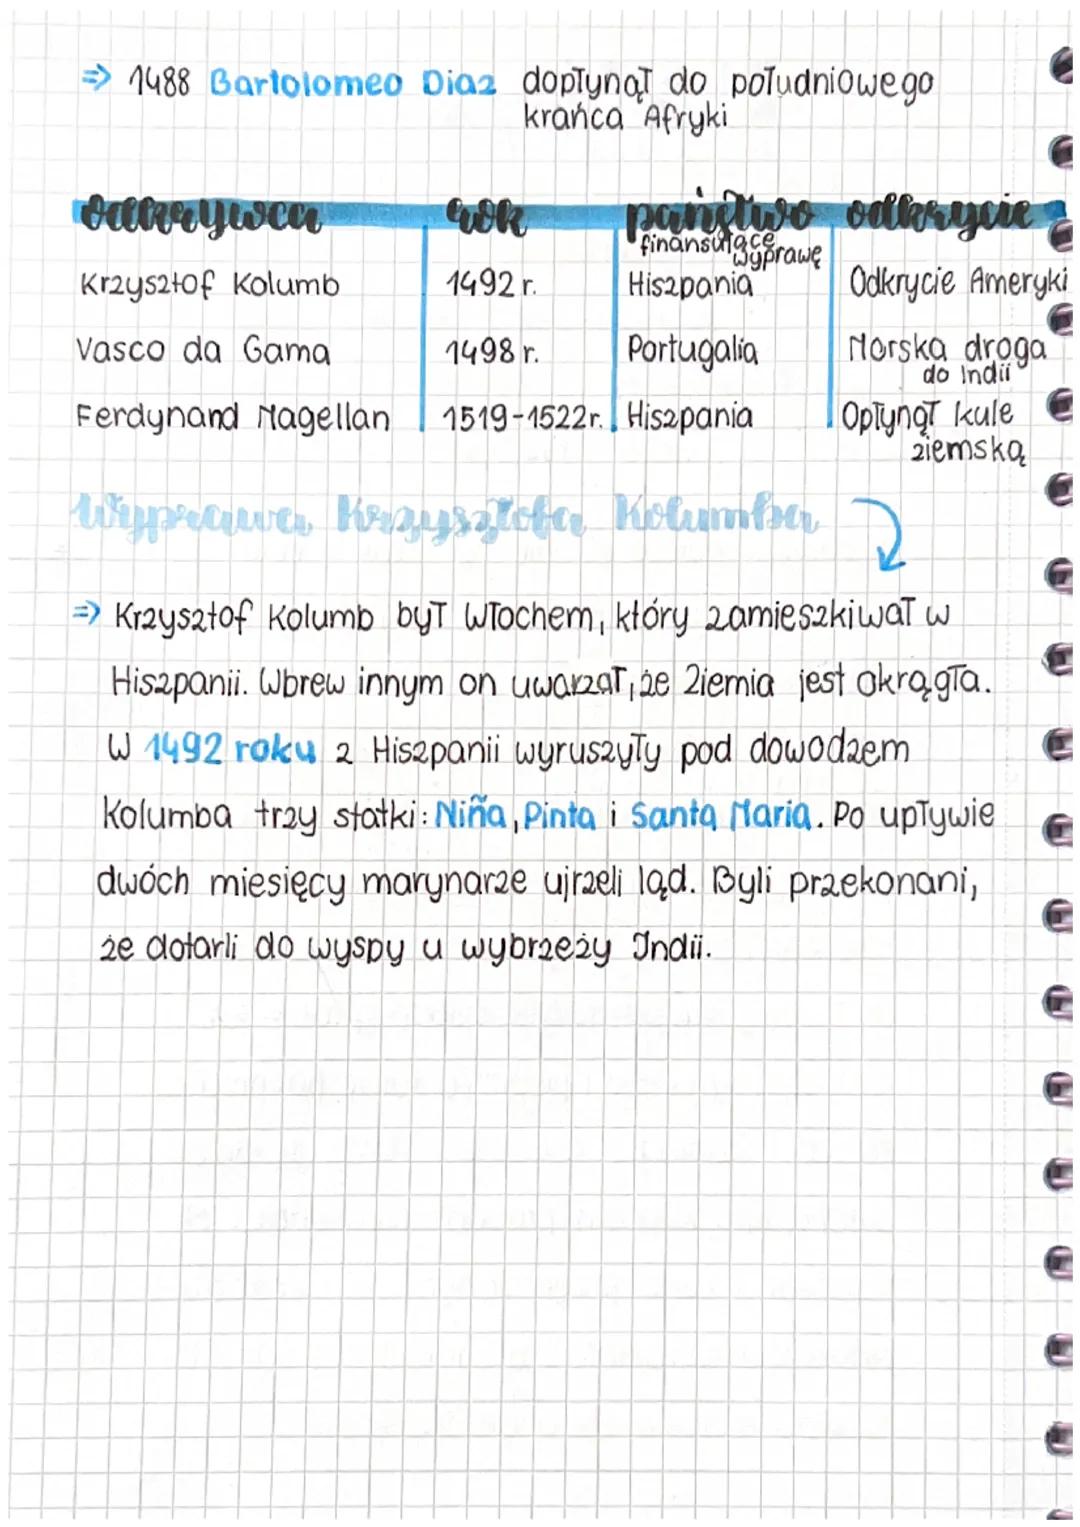 ⇒ 1488 Bartolomeo Diaz dopłynął do południowego
krańca Afryki
odkrywca rok państwo odkrycie
finansujące wyprawę
Krzysztof Kolumb 1492 r. Hiszpania Odkrycie Ameryki
Vasco da Gama 1498 r. Portugalia Morska droga
do Indii
Ferdynand Magellan 1519-1522r. Hiszpania Opłynął kule
ziemską
Wyprawa Krzysztofa Kolumba
⇒ Krzysztof Kolumb był Włochem, który zamieszkiwał w
Hiszpanii. Wbrew innym on uwarzał, że Ziemia jest okrągła.
W 1492 roku z Hiszpanii wyruszyły pod dowodzem
Kolumba trzy statki: Niña, Pinta i Santa Maria. Po upływie
dwóch miesięcy marynarze ujrzeli ląd. Byli przekonani,
że dotarli do wyspy u wybrzeży Indii.